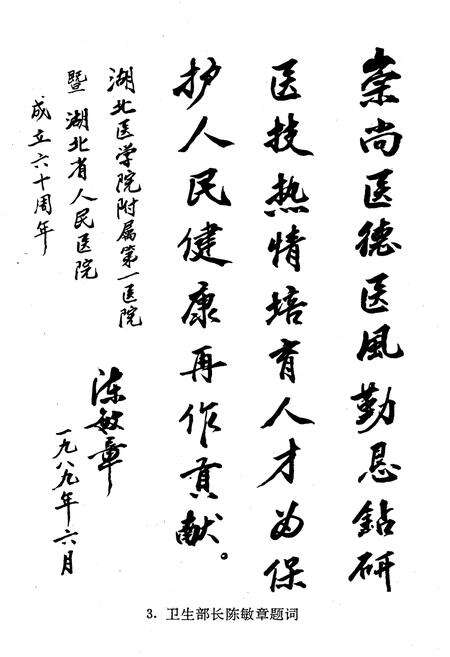 崇尚医德医风勤恳钻研
医技热情培育人才为保
护人民健康再作贡献。
湖北医学院附属第一医院
暨湖北省人民医院
成立六十周年
陈敏章
一九八九年六月
3. 卫生部长陈敏章题词